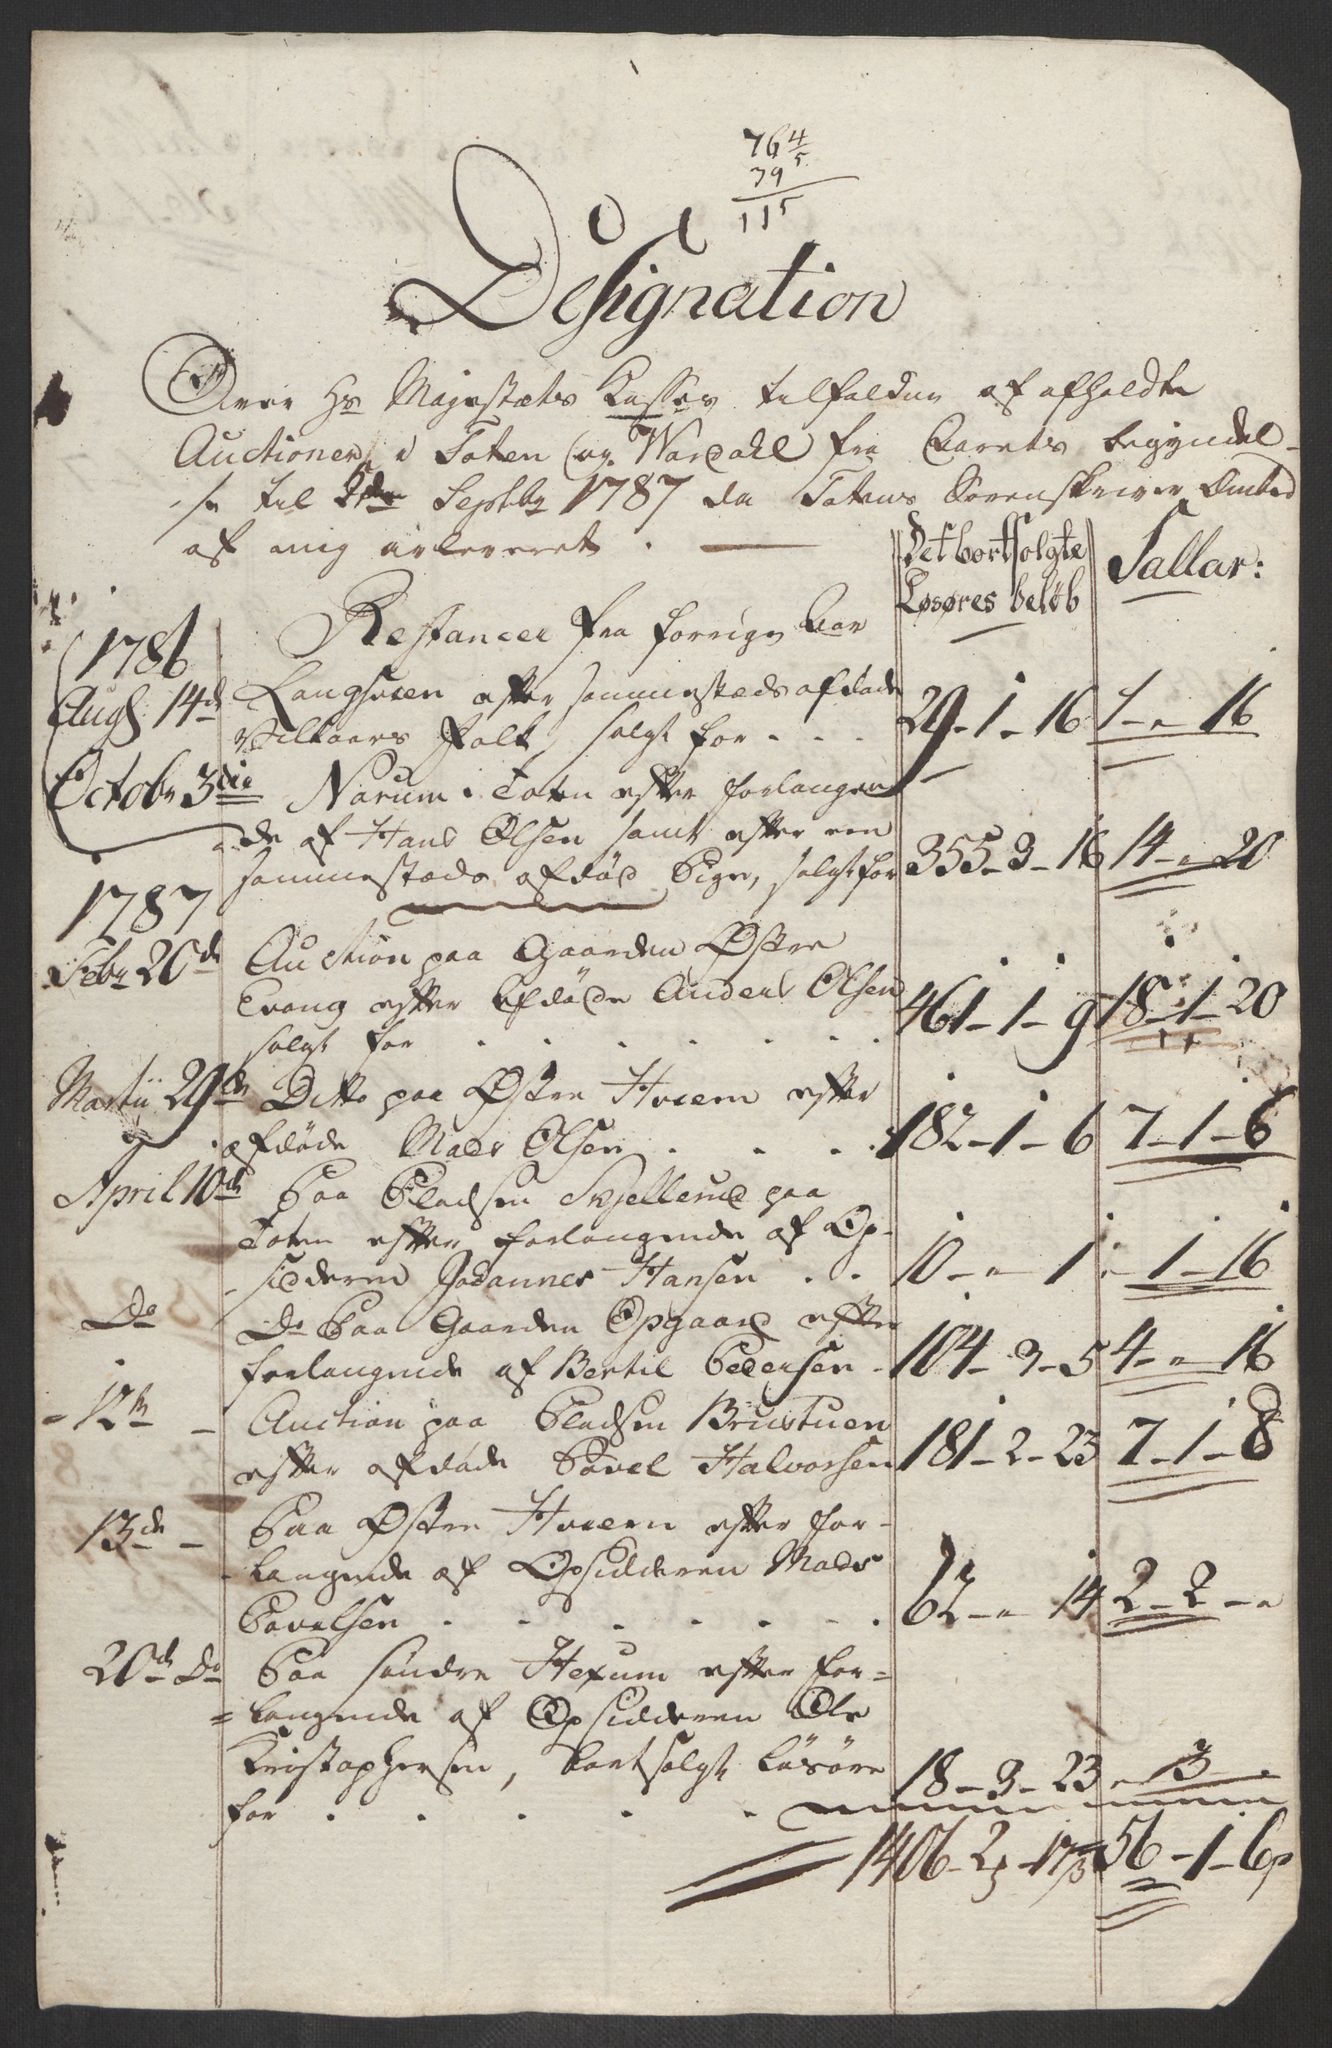 76 4/5
39
115
Designation
Over Hs Majestæts Casses tilfaldne af afholdte
Auctioner i Toten og Wardahl fra Aarets begyndel-
se til Septbr 1787 da Totens Sorenskriver Embed
af mig er leveret . —
Det bortsolgte
Løsøres beløb
Sallar:
1786
Restancer fra forrige Aar
Augs 14de
efter sammestæds afdøde
Folk, solgt for . . . 29 - 1 - 16 1 - " 16
Octobr 3die Narum i Toten efter forlangen
de af Hans Olsen samt efter een
sammestæds afdød Pige, solgt for 355 - 3 - 16 14 - " 20
1787
Febr 20de Auction paa Gaarden Østre
Evang efter Afdøde Anders Olsen
solgt for . . . . . . . 461 - 1 - 9 18 - 1 - 20
Martii 29de Ditto paa Østre Hveem efter
afdøde Mads Olsen . . . . 182 - 1 - 6 7 - 1 - 6
April 10de Paa Pladsen Skjellerud paa
Toten efter forlangende af Op-
sidderen Johannes Hansen . . 10 - " 1 " 1 - 16
Do Do Paa Gaarden Opgaard efter
forlangende af Bertil Pedersen - 104 - 3 - 5 4 - " 16
- 12te - Auction paa Pladsen Brustuen
efter afdøde Povel Halvorsen 181 - 2 - 23 7 - 1 - 8
13de - Paa Østre Hveem efter for-
langende af Opsidderen Mads
Povelsen . . . . . . . 62 - " 14 2 - 2 - "
20de Do Paa søndre Hexum efter for-
langende af Opsidderen Ole
Kristophersen, bortsolgt løsøre
for . . . . . 18 - 3 - 23 " 3 - "
1406 - 2 - 17 56 - 1 - 6